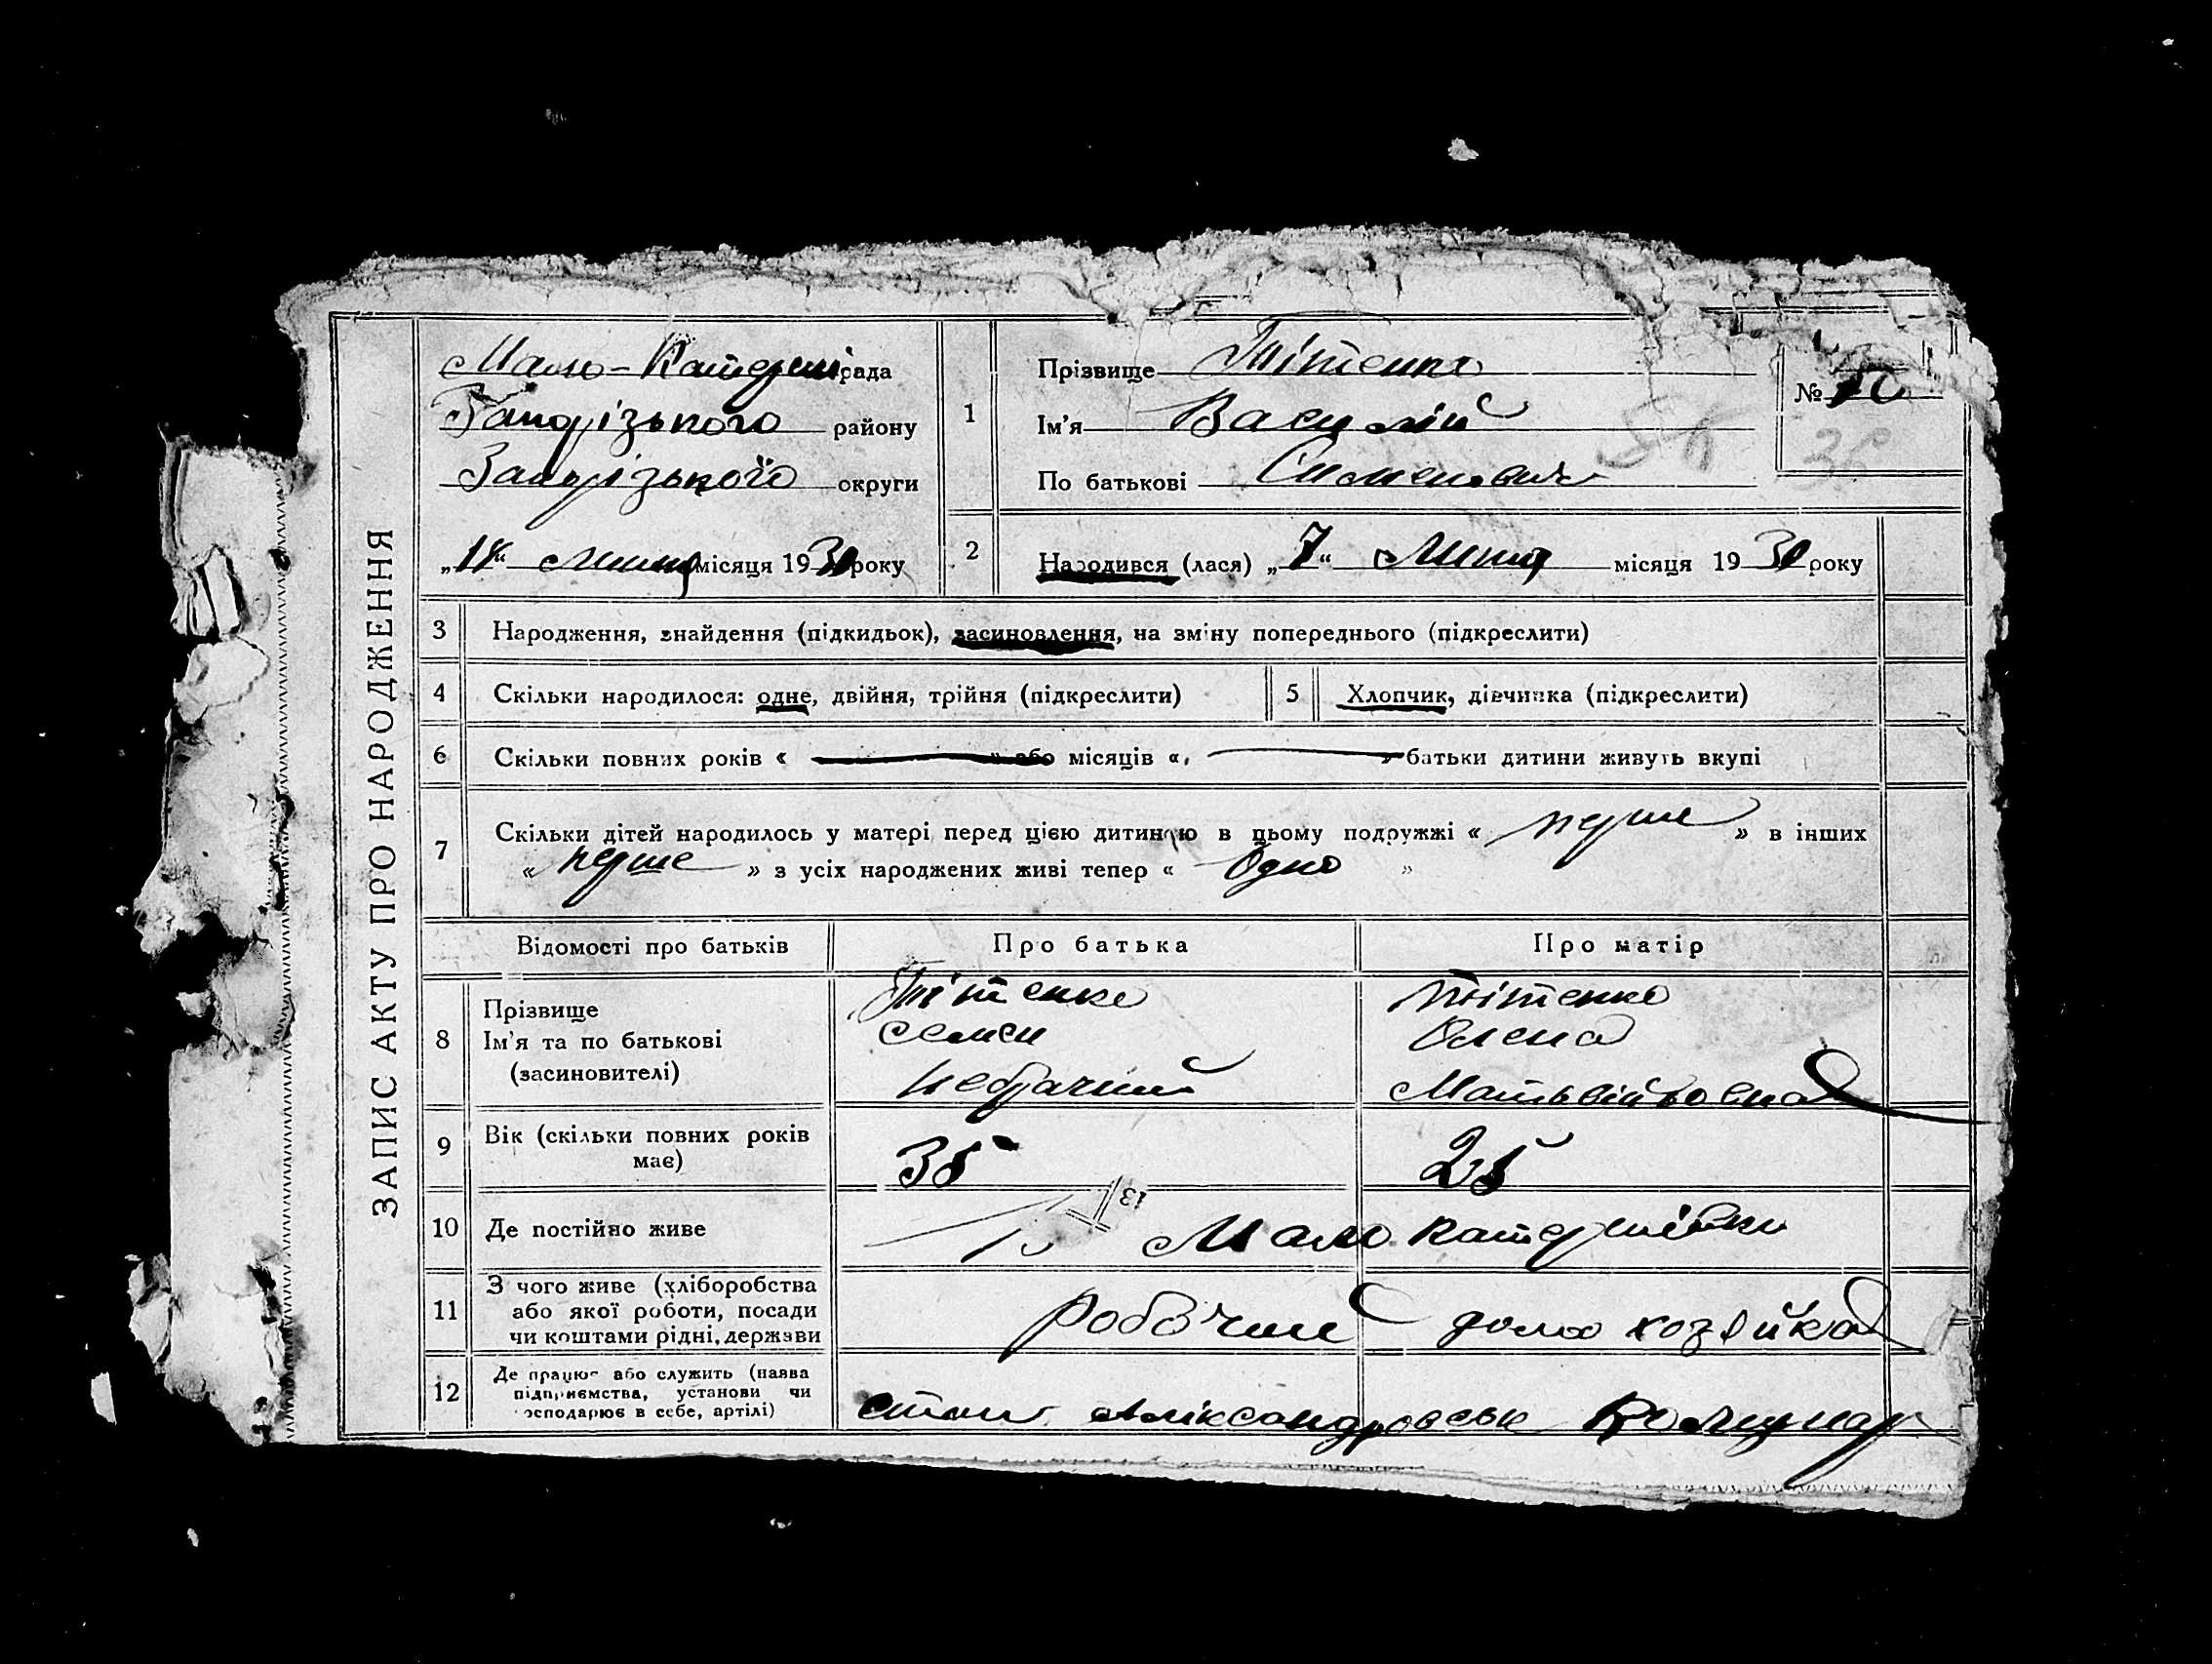 ЗАПИС АКТУ ПРО НАРОДЖЕННЯ
Мало-Катерин рада
Запорізького району
Запорізького округи
„18“ Липця місяця 1930 року
1 Прізвище Тітенко
Ім'я Василій
По батькові Сименович
№ 50
36
2 Народився (лася) „7“ Липця місяця 1930 року
3 Народження, знайдення (підкидьок), засиновлення, на зміну попереднього (підкреслити)
4 Скільки народилося: одне, двійня, трійня (підкреслити)
5 Хлопчик, дівчинка (підкреслити)
6 Скільки повних років « » або місяців « » батьки дитини живуть вкупі
7 Скільки дітей народилось у матері перед цією дитиною в цьому подружжі « перше » в інших
« перше » з усіх народжених живі тепер « Одно »
Відомості про батьків Про батька Про матір
8 Прізвище
Ім'я та по батькові
(засиновителі)
Тітенко
Семен
Тітенко
Олена
Матьвійовена
9 Вік (скільки повних років
має)
35 25
10 Де постійно живе
13
Мало Катеринівки
11 З чого живе (хліборобства
або якої роботи, посади
чи коштами рідні, держави
робочий дома хозяйка
12 Де працює або служить (назва
підприємства, установи чи
господарює в себе, артілі)
Аліксандровськ